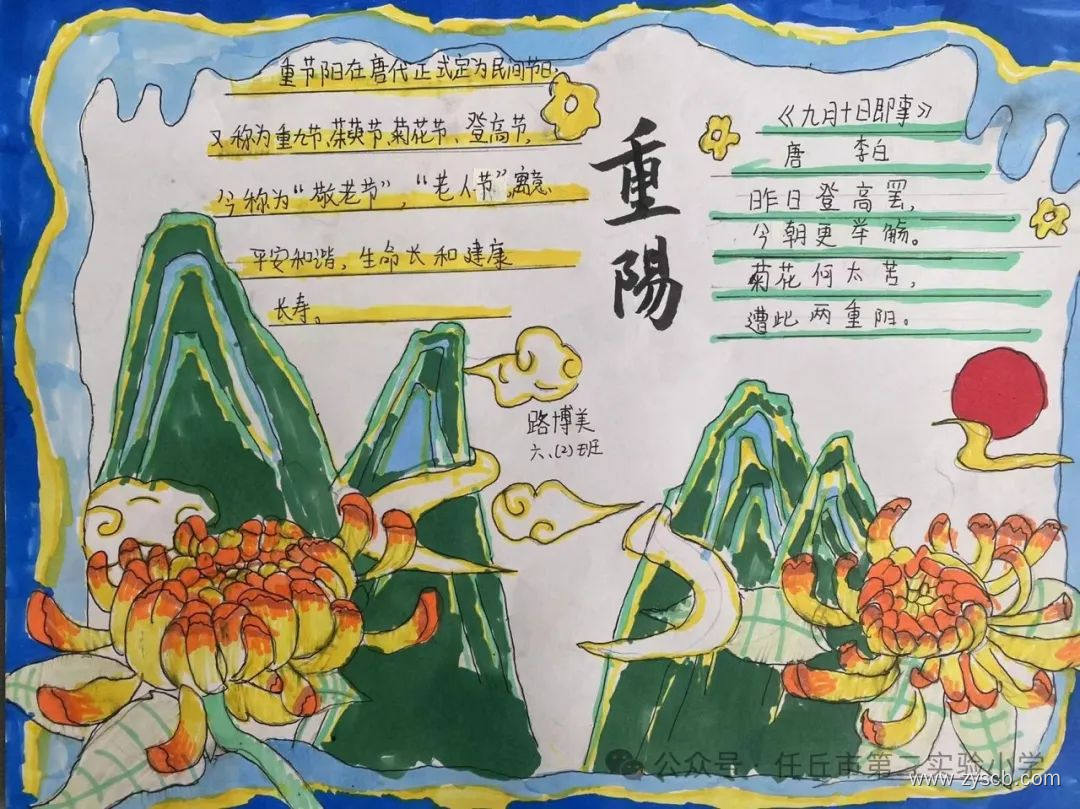 重节阳在唐代正式定为民间节日,
又称为重九节、茱萸节、菊花节、登高节,
今称为“敬老节”,“老人节”,寓意
平安和谐,生命长和健康
长寿。
重陽
《九月十日即事》
唐 李白
昨日登高罢,
今朝更举觞。
菊花何太苦,
遭此两重阳。
路博美
六、(2)班
公众号·任丘市第二实验小学
www.zyscb.com